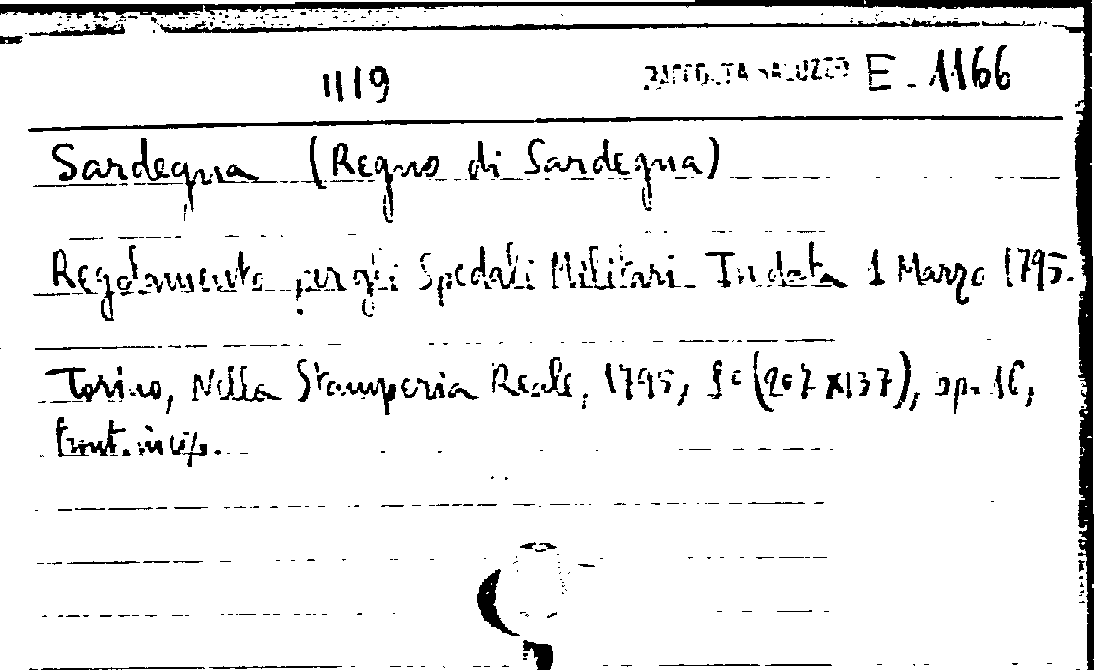 1119 RACCOLTA SALUZZO E. 1166
Sardegna (Regno di Sardegna)
Regolamento per gli Spedali Militari In data 1 Marzo 1795.
Torino, Nella Stamperia Reale, 1795, 8° (207x137), pp. 16,
front. incis.